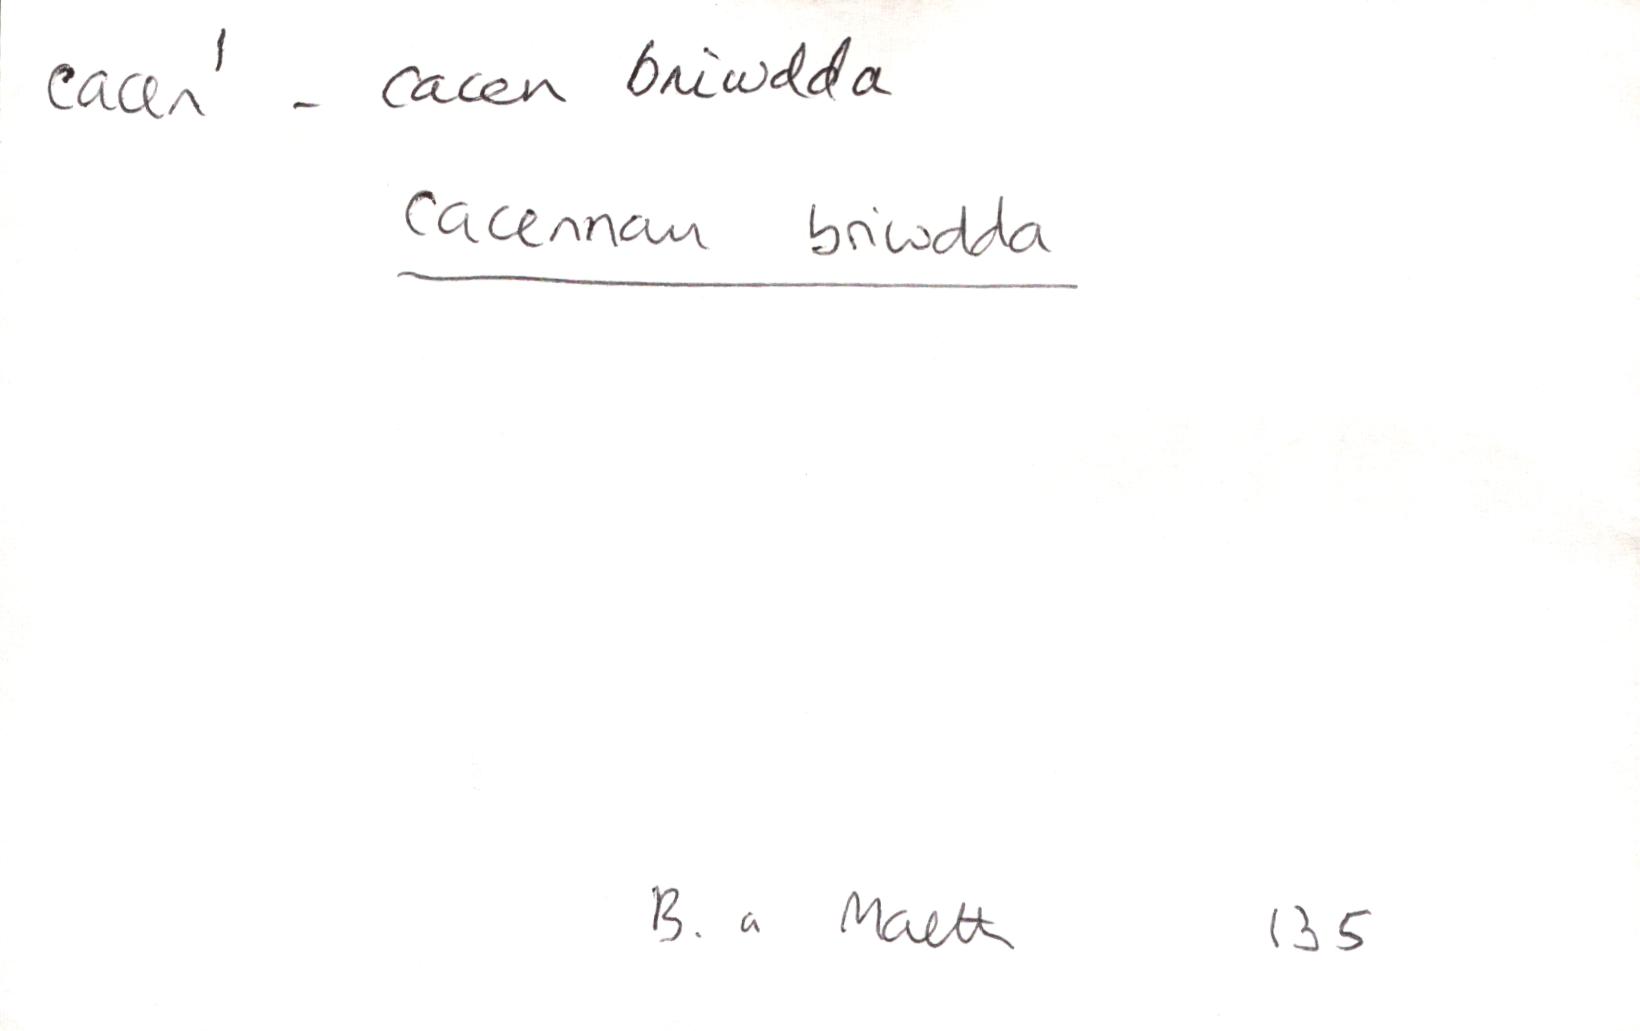 cacen¹ - cacen briwdda
cacennau briwdda
B. a Maeth 135